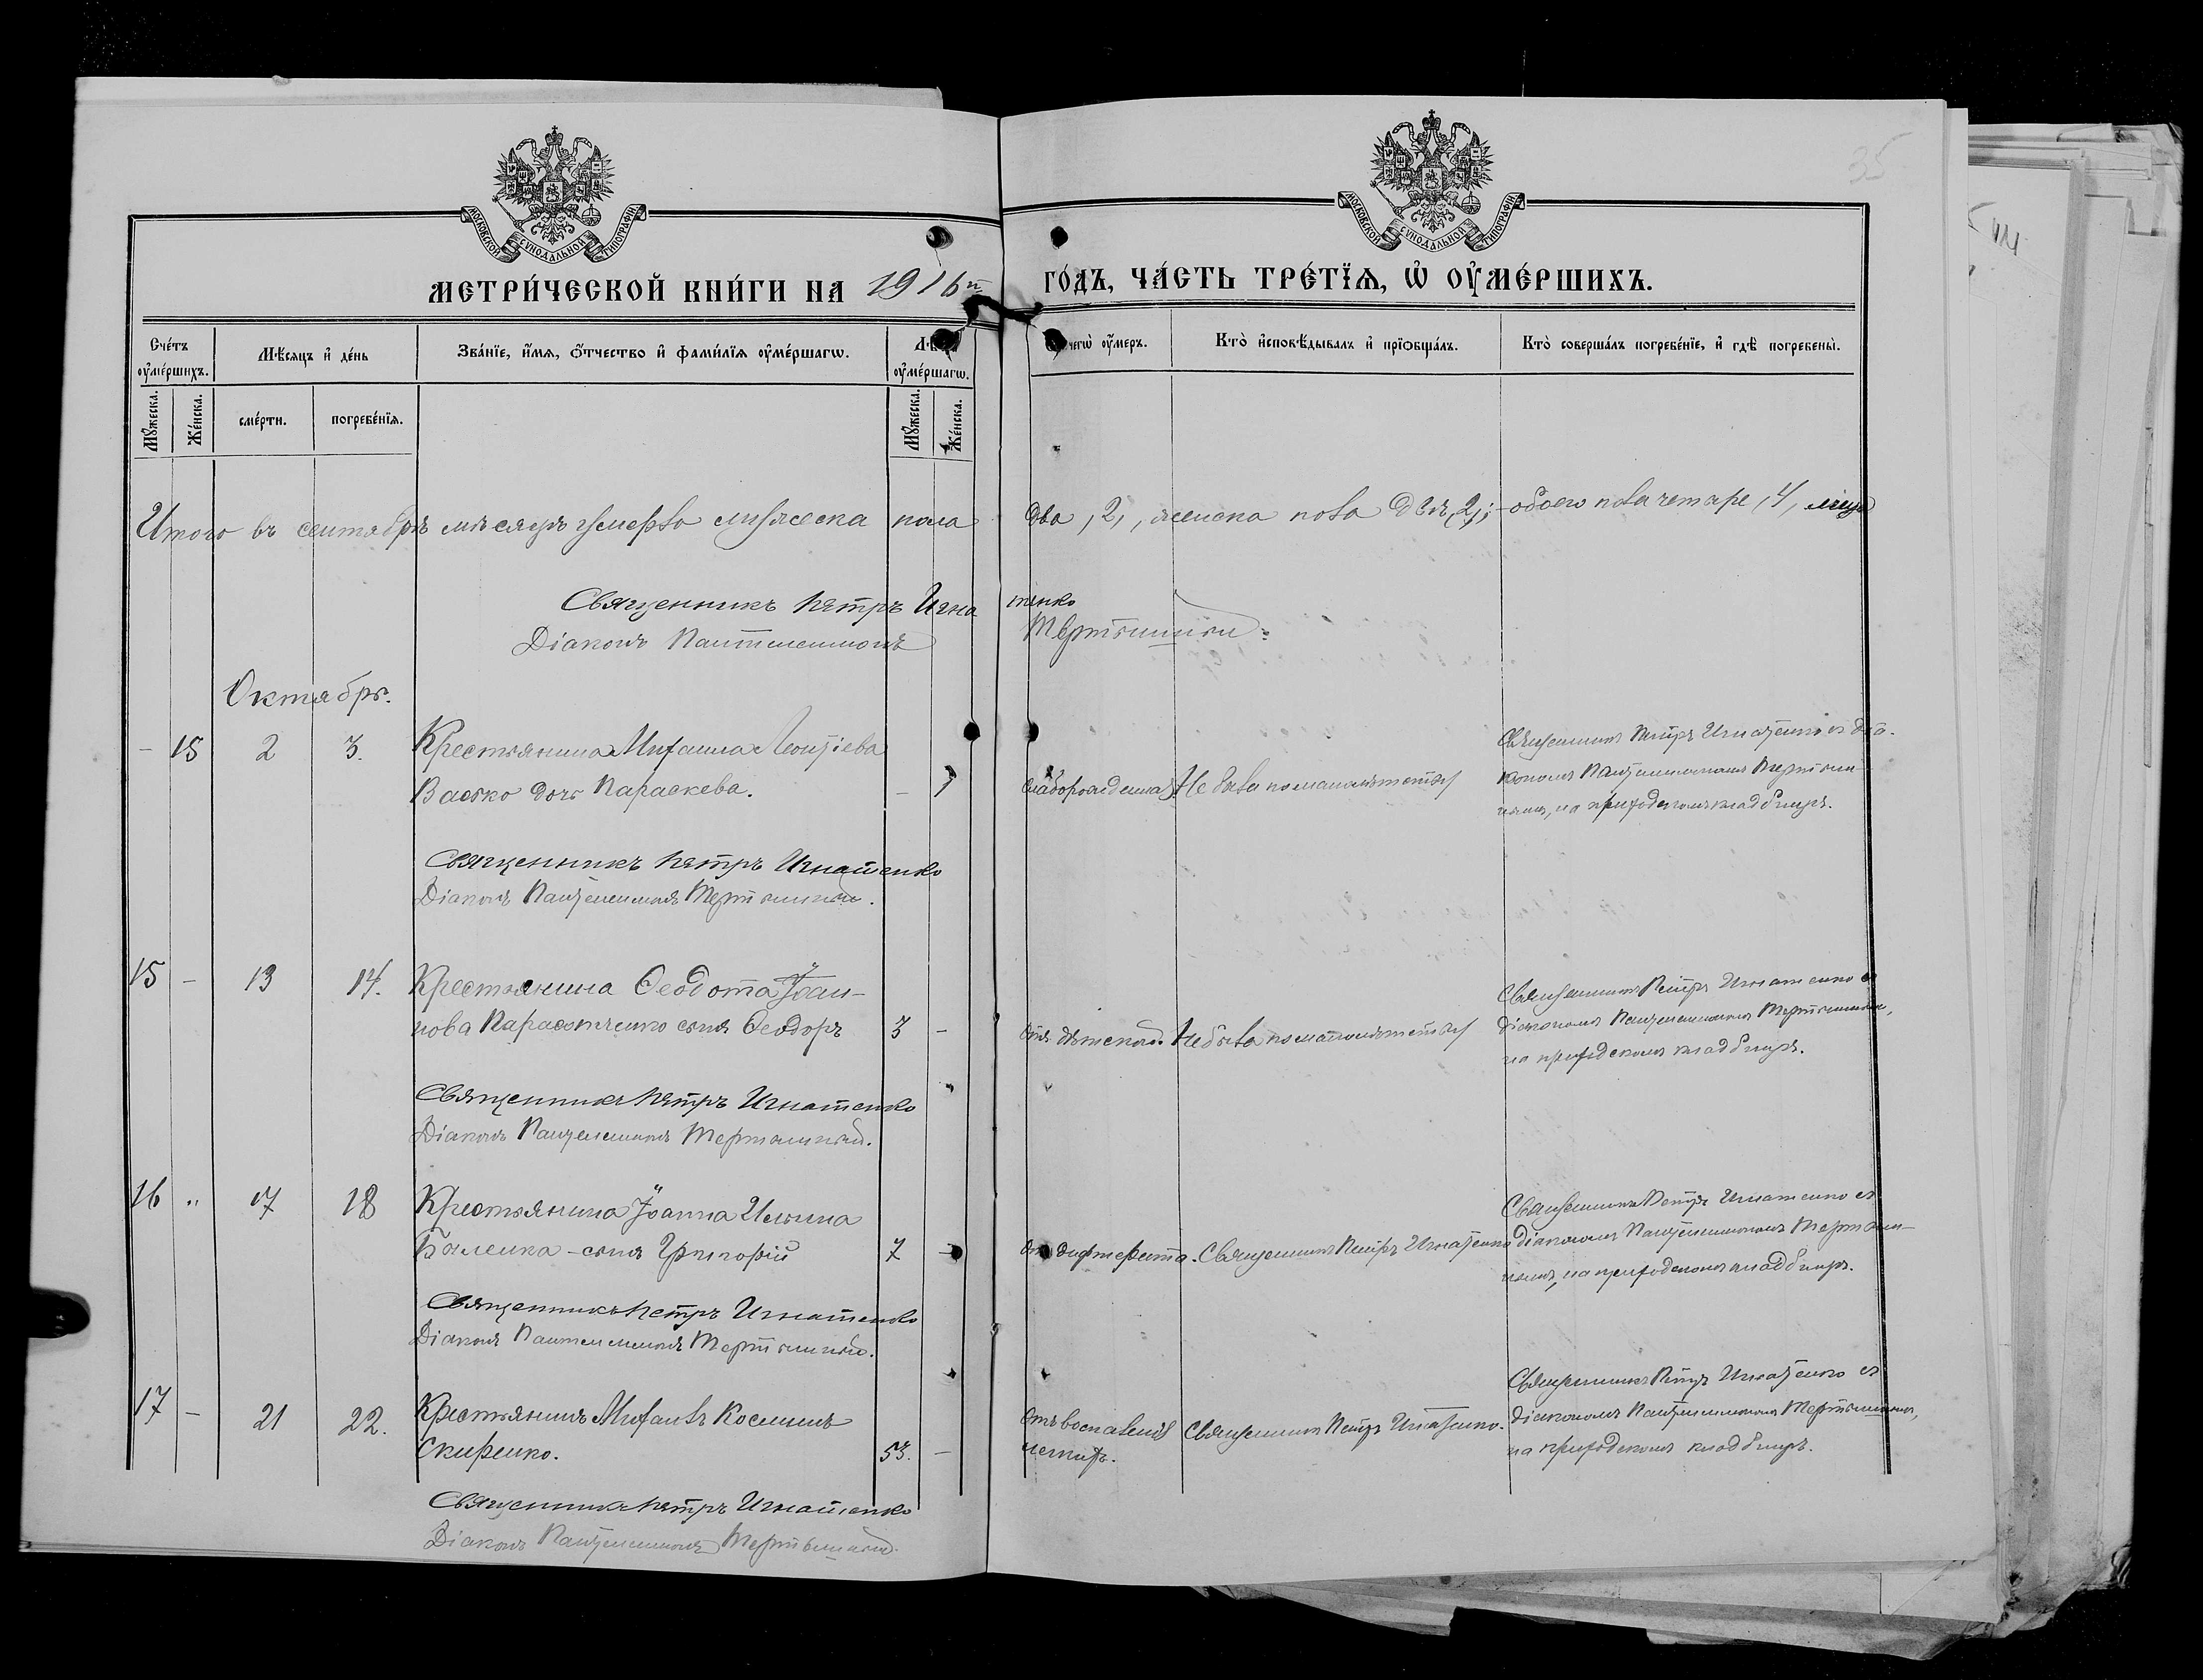 35
МОСКОВСКОЙ СѴНОДАЛЬНОЙ ТИПОГРАФІИ
МОСКОВСКОЙ СѴНОДАЛЬНОЙ ТИПОГРАФІИ
МЕТРИ́ЧЕСКОЙ КНИ́ГИ НА 1916й ГО́ДЪ, ЧА́СТЬ ТРЕ́ТЇѦ, Ѽ ОУ҆МЕ́РШИХЪ.
Сче́тъ оу҆ме́ршихъ. Мѣ́сяцъ и҆ де́нь Зва́нїе, и҆́мѧ, ѻ҆́тчество и҆ фами́лїѧ оу҆ме́ршагѡ. оу҆ме́ршагѡ. чегѡ̀ оу҆́меръ. Кто̀ и҆сповѣ́дывалъ и҆ прїѡбща́лъ. Кто̀ соверша́лъ погребе́нїе, и҆ гдѣ̀ погребены̀.
Мꙋ́жеска. Же́нска. сме́рти. погребе́нїѧ. Мꙋ́жеска. Же́нска.
Итого въ сентябрѣ мѣсяцѣ умерло мужеска пола два, 2, женска пола двѣ, 2,; обоего пола четыре, 4, лица
Священникъ Петръ Игнатенко
Діаконъ Пантелеимонъ
Октябрь.
– 15 2 3. Крестьянина Михаила Леонтіева
Васько дочь Параскева. –
слаборожденная Не была по малолѣтству
Священникъ Петръ Игнатенко съ діа-
кономъ Пантелеимономъ
на приходскомъ кладбищѣ.
Священникъ Петръ Игнатенко
Діаконъ Пантелеимонъ
15 – 13 14. Крестьянина Ѳеодота Іоан-
нова сынъ Ѳеодоръ 3 –
Не былъ по малолѣтству
Священникъ Петръ Игнатенко съ
діакономъ Пантелеимономъ
на приходскомъ кладбищѣ.
Священникъ Петръ Игнатенко
Діаконъ Пантелеимонъ
16 „ 17 18 Крестьянина Іоанна Ильина
сынъ Григорій 7 –
дифтерита. Священникъ Петръ Игнатенко
Священникъ Петръ Игнатенко съ
діакономъ Пантелеимономъ
на приходскомъ кладбищѣ.
Священникъ Петръ Игнатенко
Діаконъ Пантелеимонъ
17 – 21 22. Крестьянинъ Михаилъ Косминъ
Скиренко. 53. –
Отъ воспаленія
легкихъ.
Священникъ Петръ Игнатенко.
Священникъ Петръ Игнатенко съ
діакономъ Пантелеимономъ
на приходскомъ кладбищѣ.
Священникъ Петръ Игнатенко
Діаконъ Пантелеимонъ